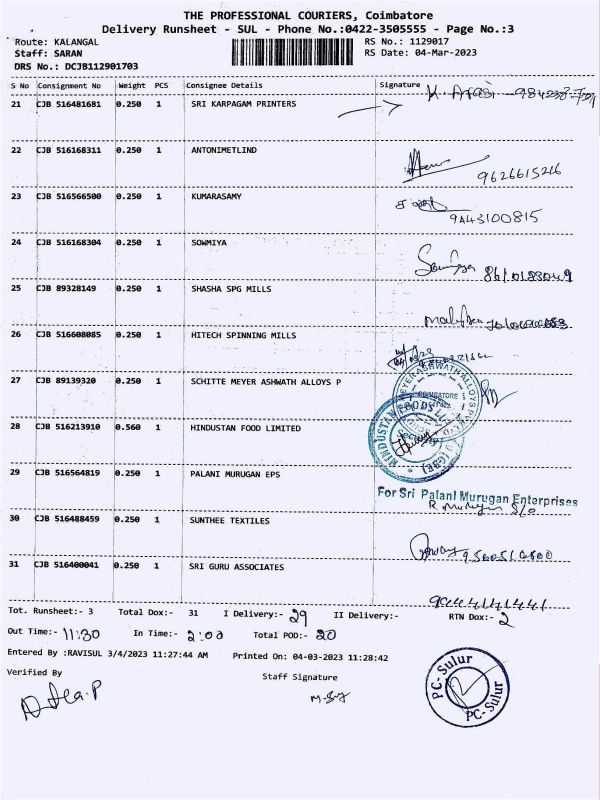 THE PROFESSIONAL COURIERS, Coimbatore
Delivery Runsheet - SUL - Phone No.:0422-3505555 - Page No.:3
Route: KALANGAL
RS No.: 1129017
Staff: SARAN
RS Date: 04-Mar-2023
DRS No.: DCJB112901703
S No Consignment No Weight PCS Consignee Details Signature
21 CJB 516481681 0.250 1 SRI KARPAGAM PRINTERS
22 CJB 516168311 0.250 1 ANTONIMETLIND
9626615216
23 CJB 516566500 0.250 1 KUMARASAMY
9443100815
24 CJB 516168304 0.250 1 SOWMIYA
Sowmiya
25 CJB 89328149 0.250 1 SHASHA SPG MILLS
26 CJB 516608085 0.250 1 HITECH SPINNING MILLS
27 CJB 89139320 0.250 1 SCHITTE MEYER ASHWATH ALLOYS P
28 CJB 516213910 0.560 1 HINDUSTAN FOOD LIMITED
29 CJB 516564819 0.250 1 PALANI MURUGAN EPS
For Sri Palani Murugan Enterprises
R Murugan
30 CJB 516488459 0.250 1 SUNTHEE TEXTILES
31 CJB 516400041 0.250 1 SRI GURU ASSOCIATES
Tot. Runsheet:- 3 Total Dox:- 31 I Delivery:- 29 II Delivery:- RTN Dox:- 2
Out Time:- 11:30 In Time:- 2:00 Total POD:- 20
Entered By :RAVISUL 3/4/2023 11:27:44 AM Printed On: 04-03-2023 11:28:42
Verified By
Staff Signature
PC-Sulur
PC-Sulur